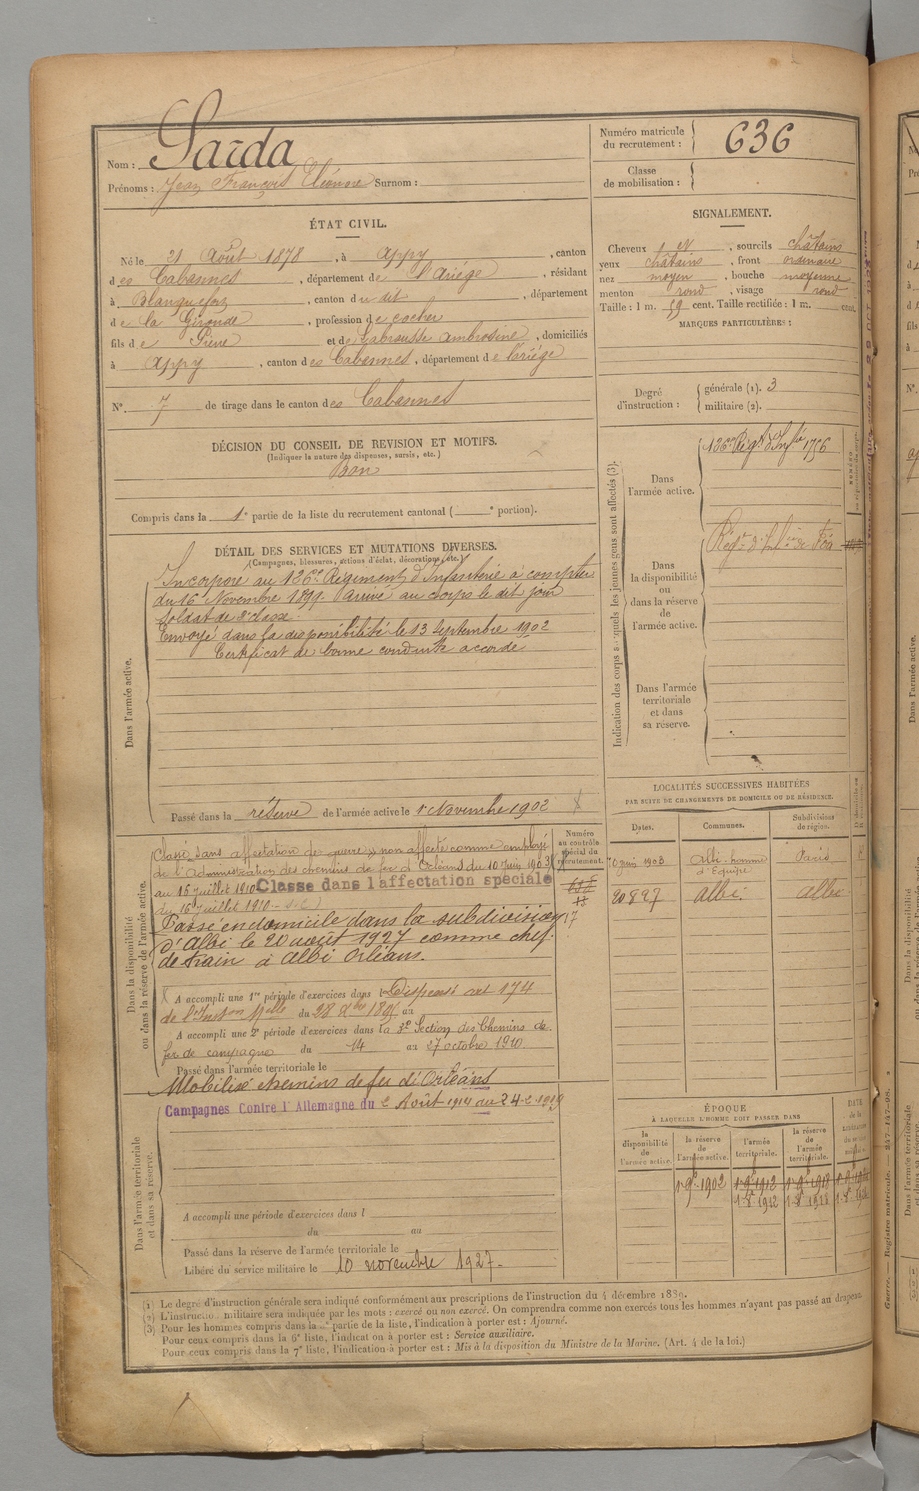 Nom : Sarda
Prénoms : Jean François Eléonore Surnom :
Numéro matricule du recrutement : 636
Classe de mobilisation :
ÉTAT CIVIL.
Né le 21 Août 1878, à Appy, canton
des Cabannes, département de l'Ariége, résidant
à Blanquefort, canton du dit, département
de la Gironde, profession de cocher
fils de Pierre et de Labrousse Ambrosine, domiciliés
à Appy, canton des Cabannes, département de l'ariége
N° 7 de tirage dans le canton des Cabannes
SIGNALEMENT.
Cheveux , sourcils châtains
yeux châtains, front ordinaire
nez moyen, bouche moyenne
menton rond, visage rond
Taille : 1 m. 59 cent. Taille rectifiée : 1 m. cent.
MARQUES PARTICULIÈRES :
Degré d'instruction : générale (1). 3
militaire (2).
DÉCISION DU CONSEIL DE REVISION ET MOTIFS.
(Indiquer la nature des dispenses, sursis, etc.)
Bon
Compris dans la 1e partie de la liste du recrutement cantonal ( e portion).
DÉTAIL DES SERVICES ET MUTATIONS DIVERSES.
(Campagnes, blessures, actions d'éclat, décorations, etc.)
Dans l'armée active.
Incorporé au 126e Régiment d'Infanterie à compter
du 16 Novembre 1899. Arrivé au corps le dit jour
Soldat de 2e classe.
Envoyé dans la disponibilité le 13 Septembre 1902
Certificat de bonne conduite accordé
Passé dans la réserve de l'armée active le 1r Novembre 1902
Indication des corps auxquels les jeunes gens sont affectés (3).
Dans l'armée active.
126e Régt d'Infie 1756
Dans la disponibilité ou dans la réserve de l'armée active.
Régt d'Infie de Foix
Dans l'armée territoriale et dans sa réserve.
LOCALITÉS SUCCESSIVES HABITÉES
PAR SUITE DE CHANGEMENTS DE DOMICILE OU DE RÉSIDENCE.
Dates. Communes. Subdivisions de région.
10 juin 1903 Albi - homme d'Equipe Paris
20 8 27 Albi. Albi
Dans la disponibilité ou dans la réserve de l'armée active.
Numéro au contrôle spécial du recrutement.
Classé "sans affectation de guerre" non affecté comme employé
de l'Administration des chemins de fer d'Orléans du 10 Juin 1903
au 16 juillet 1910 Classe dans l'affectation spéciale
du 16 Juillet 1910
Passé en domicile dans la subdivision
d'Albi le 20 août 1927 comme chef
de train à Albi Orléans.
A accompli une 1re période d'exercices dans Dispensé art 174
de l'Inston du 28 Xbre 1895 au
A accompli une 2e période d'exercices dans la 3e Section des Chemins de
fer de campagne du 14 au 27 octobre 1910
Passé dans l'armée territoriale le
Mobilisé chemins de fer d'Orléans
Dans l'armée territoriale et dans sa réserve.
Campagnes Contre l'Allemagne du 2 Août 1914 au 24-2 1919
A accompli une période d'exercices dans l
du au
Passé dans la réserve de l'armée territoriale le
Libéré du service militaire le 10 novembre 1927.
ÉPOQUE
À LAQUELLE L'HOMME DOIT PASSER DANS
la disponibilité de l'armée active. la réserve de l'armée active. l'armée territoriale. la réserve de l'armée territoriale. DATE de la
1r 9bre 1902 1r 9bre 1912 1r 9bre 1918
(1) Le degré d'instruction générale sera indiqué conformément aux prescriptions de l'instruction du 4 décembre 1889.
(2) L'instruction militaire sera indiquée par les mots : exercé ou non exercé. On comprendra comme non exercés tous les hommes n'ayant pas passé au drapeau.
(3) Pour les hommes compris dans la 2e partie de la liste, l'indication à porter est : Ajourné.
Pour ceux compris dans la 6e liste, l'indication à porter est : Service auxiliaire.
Pour ceux compris dans la 7e liste, l'indication à porter est : Mis à la disposition du Ministre de la Marine. (Art. 4 de la loi.)